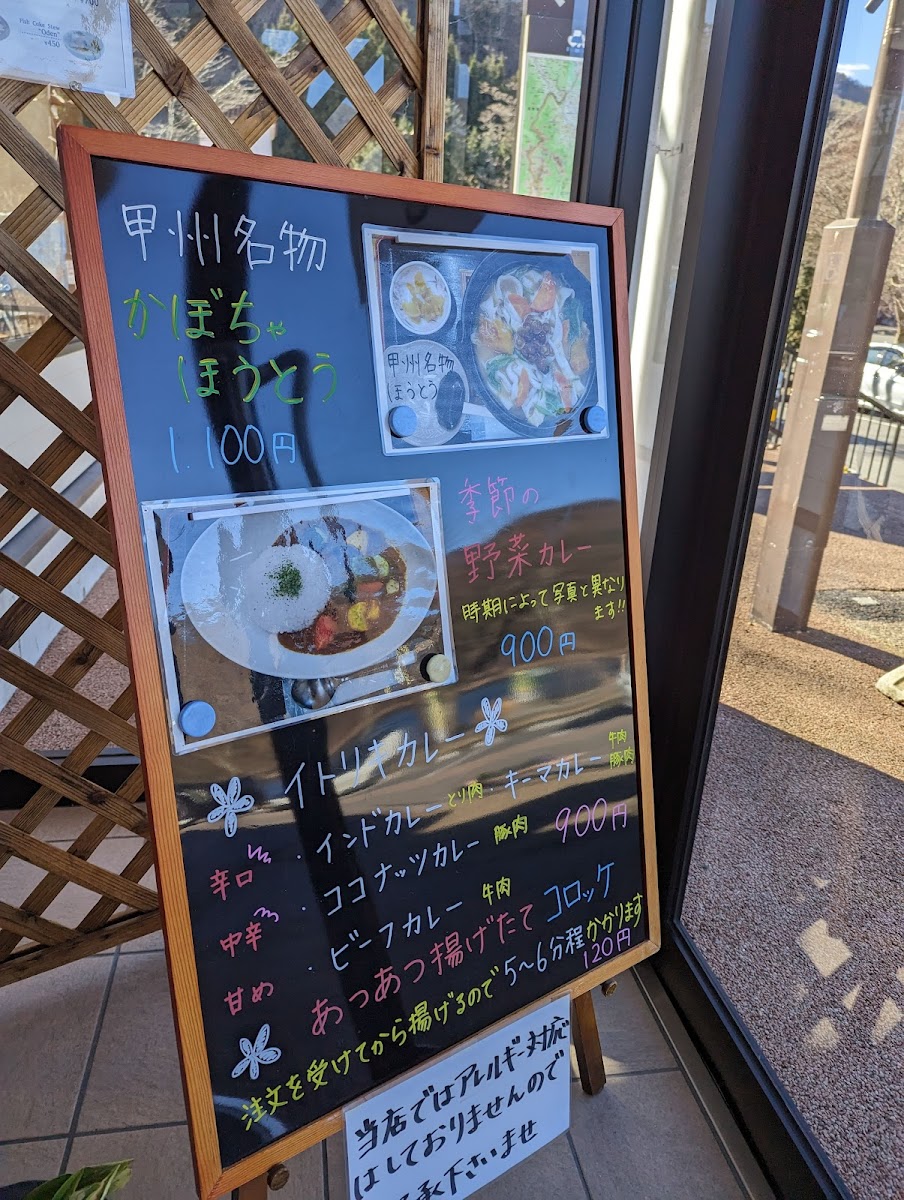 Fish Cake Stew
"Oden"
¥450
甲州名物
かぼちゃ
ほうとう
1.100円
甲州名物
ほうとう
季節の
野菜カレー
時期によって写真と異なり
ます!!
900円
イトリキカレー
辛口 ・インドカレー とり肉・キーマカレー 牛肉 豚肉
中辛 ・ココナッツカレー 豚肉 900円
甘め ・ビーフカレー 牛肉
あつあつ揚げたて コロッケ
注文を受けてから揚げるので5~6分程かかります
120円
当店ではアレルギー対応
はしておりませんので
承下さいませ